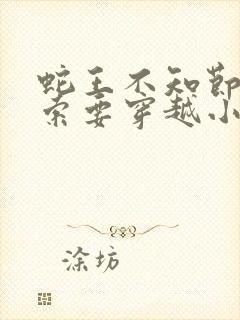 蛇王不知节
索要穿越小
涂坊